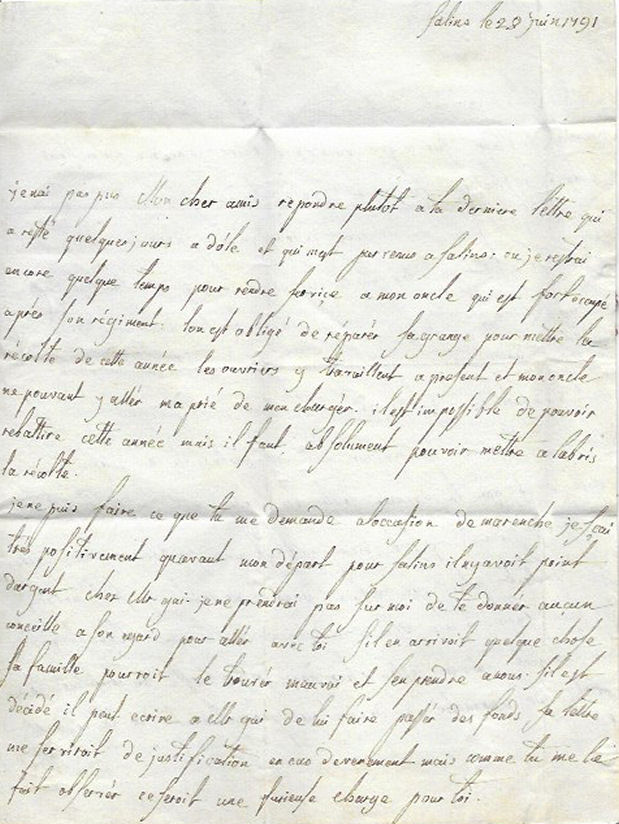 Salins le 28 juin 1791
je nai pas pus Mon cher amis repondre plutot a ta derniere lettre qui
a resté quelques jours a dôle et qui mest parvenus a salins: ou je restrai
encore quelque temps pour rendre service a mon oncle qui est fort occupé
aprés son régiment. lon est obligé de réparér sa grange pour mettre la
récolte de cette année les ouvriers y travaillent a present et mon oncle
ne pouvant y allér ma prié de men chargér. il est impossible de pouvoir
rebattire cette année mais il faut absolument pouvoir mettre alabris
la récolte.
je ne puis faire ce que tu me demande aloccasion de marenche je sçai
très positivement quavant mon départ pour salins il ny avoit point
dargent cher Mr gui. je ne prendrai pas sur moi de te donnér aucun
conceille a son egard pour allér avec toi sil en arrivoit quelque chose
sa famille pourroit le trouvér mauvai et sen prendre a nous. sil est
décidé il peut ecrire a Mr gui de lui faire passer des fonds sa lettre
me serviroit de justification en cas devenement mais comme tu me le
fait observér ce seroit une furieuse charge pour toi.